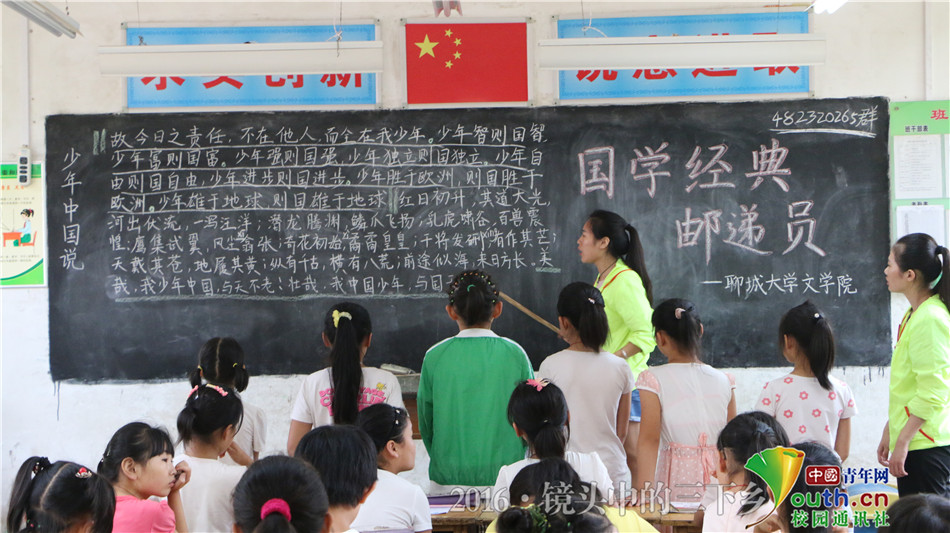 求实创新
锐意进取
482320265群
少年中国说
故今日之责任，不在他人，而全在我少年。少年智则国智
少年富则国富。少年强则国强，少年独立则国独立，少年自
由则国自由，少年进步则国进步。少年胜于欧洲，则国胜于
欧洲。少年雄于地球，则国雄于地球。红日初升，其道大光，
河出伏流，一泻汪洋；潜龙腾渊，鳞爪飞扬；乳虎啸谷，百兽震
惶；鹰隼试翼，风尘翕张；奇花初胎，矞矞皇皇；干将发硎，有作其芒；
天戴其苍，地履其黄；纵有千古，横有八荒；前途似海，来日方长。美
哉，我少年中国，与天不老！壮哉，我中国少年，与国
国学经典
邮递员
——聊城大学文学院
班
2016·镜头中的三下乡
中国青年网
youth.cn
校园通讯社